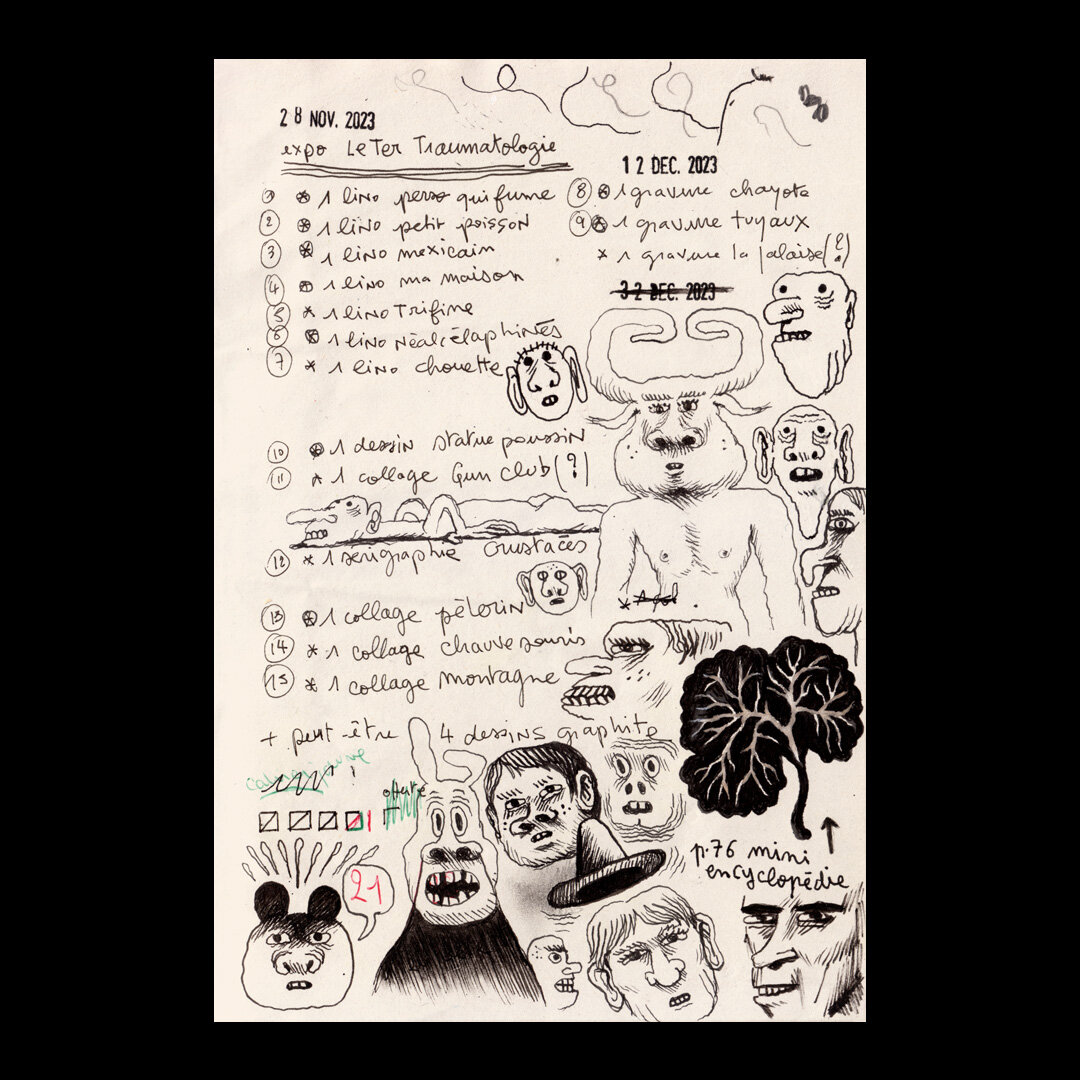 28 NOV. 2023
expo LeTer Traumatologie
1 * 1 lino perso qui fume
2 * 1 lino petit poisson
3 * 1 lino mexicain
4 * 1 lino ma maison
5 * 1 lino Trifine
6 * 1 lino
7 * 1 lino chouette
12 DEC. 2023
8 * 1 gravure chayote
9 * 1 gravure tuyaux
* 1 gravure la falaise (?)
32 DEC. 2023
10 * 1 dessin statue poussin
11 * 1 collage Gun Club (?)
12 * 1 serigraphie crustacés
13 * 1 collage pèlerin
14 * 1 collage chauve souris
15 * 1 collage montagne
+ peut-être 4 dessins graphite
21
p.76 mini
encyclopédie